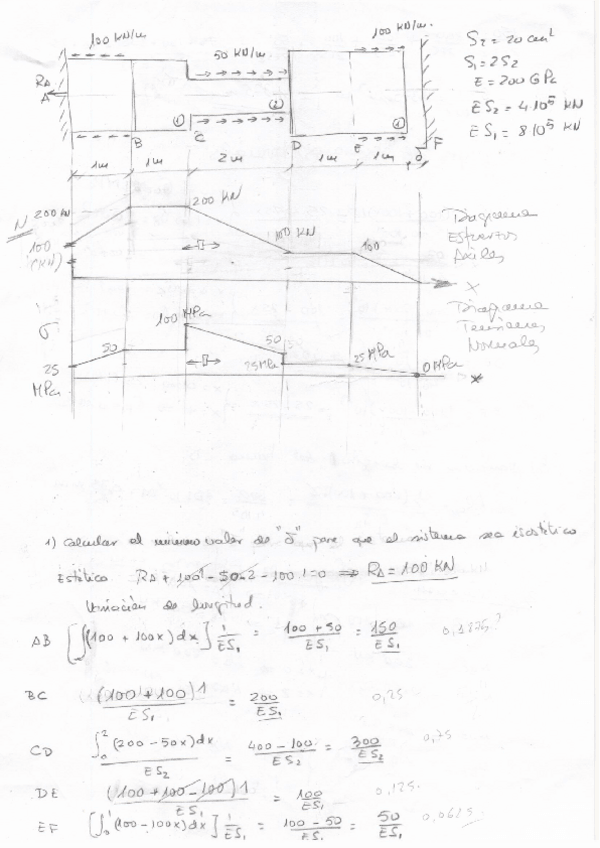 100 KN/m
50 KN/m.
100 KN/m.
S₂ = 20 cm²
S₁ = 2S₂
E = 200 GPa
ES₂ = 4 10⁵ KN
ES₁ = 8 10⁵ KN
RA
A
B
①
C
②
D
E
①
F
1m
1m
2m
1m
1m
δ
N
200 KN
200 KN
100
(KN)
100 KN
100
X
Diagrama
Esfuerzos
Axiles
σ
100 MPa
50
50
25
MPa
25MPa
25 MPa
0 MPa
x
Diagrama
Tensiones
Normales
1) Calcular el minimo valor de "δ" para que el sistema sea isostático
Estática RA + 100·1 - 50·2 - 100·1 = 0 ⇒ RA = 100 KN
Variación de longitud.
AB [∫(100 + 100x)dx] 1/ES₁ = 100 + 50/ES₁ = 150/ES₁ 0,1875
BC (100 + 100)1/ES₁ = 200/ES₁ 0,25
CD ∫₀² (200 - 50x)dx/ES₂ = 400 - 100/ES₂ = 300/ES₂ 0,75
DE (100 + 100 - 100)1/ES₁ = 100/ES₁ 0,125
EF [∫₀¹ (100 - 100x)dx] 1/ES₁ = 100 - 50/ES₁ = 50/ES₁ 0,0625